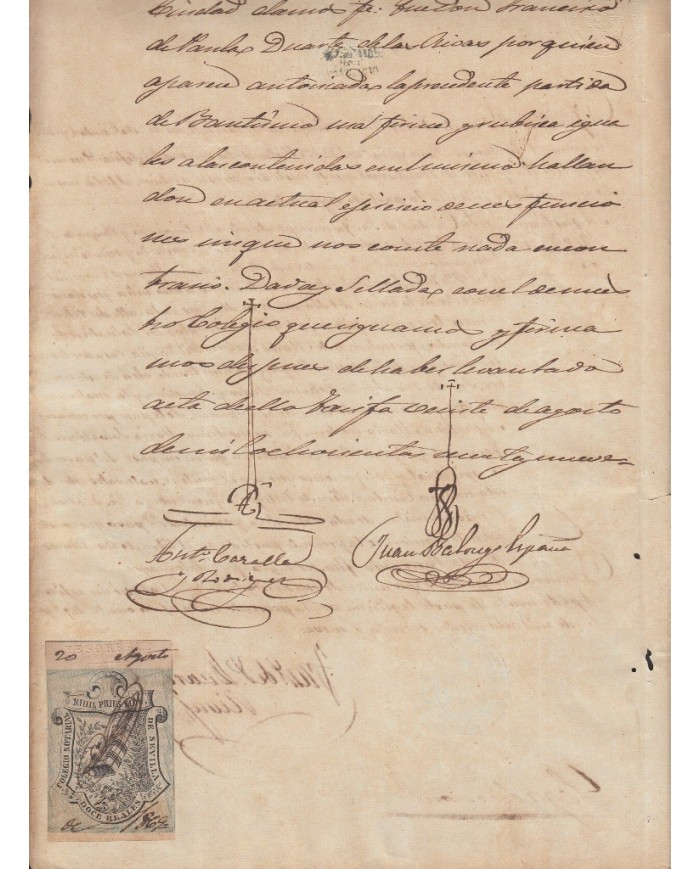 Ciudad damos fe: que Don Francisco
de Paula Duarte de las Rivas por quien
aparece autorizada la precedente partida
de Bautismo usa firma y rubrica igua
les a las contenidas en el mismo hallan
dose en actual ejercicio de sus funcio
nes sin que nos conste nada en con
trario. Dada y Sellada con el de nues
tro Colegio que signamos y firma
mos despues de haber levantado
acta de ello Tarifa veinte de agosto
de mil ochocientos sesenta y nueve
Anto. Caralla
y Rodrigz
Juan Balongo España
20 Agosto
NIHIL PRIUS FIDE
COLEGIO NOTARIAL DE SEVILLA
DOCE REALES
de 1869